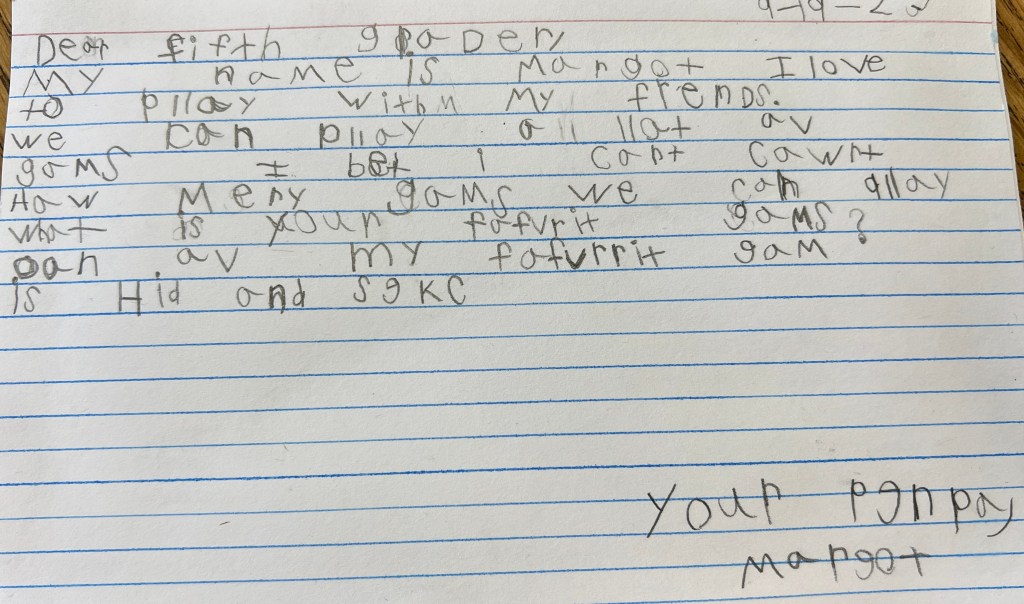 Dear fifth grader,
My name is Margot I love
to pllay with my frends.
we can pllay a llat av
gams I bet i cant cawnt
Haw Meny gams we can pllay
what is your fafvrit gams?
oan av my fafvrrit gam
is Hid and sekc
Your penpal
Margot